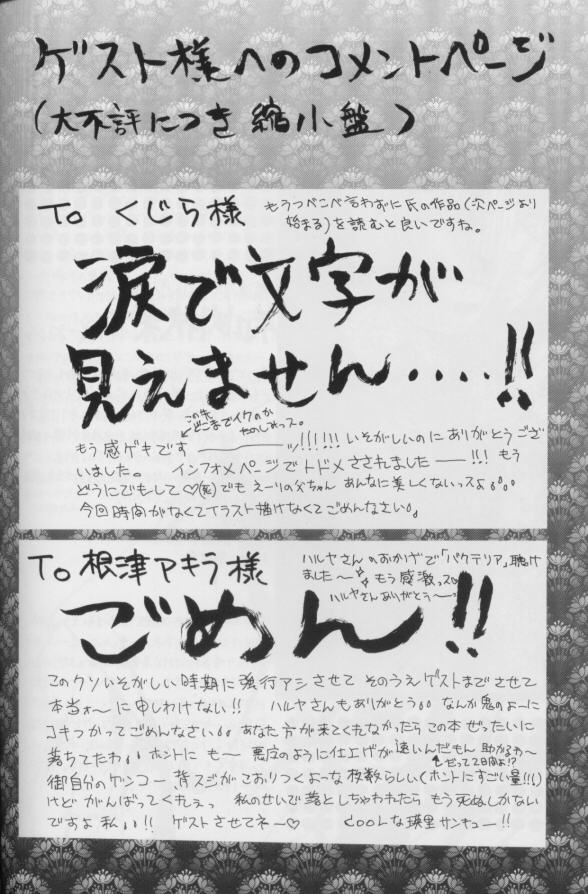 ゲスト様へのコメントページ
(大不評につき縮小盤)
To くじら様
もうつべこべ言わずに氏の作品(次ページより
始まる)を読むと良いですね。
涙で文字が
見えません‥‥!!
この先
どこまでイクのか
もう感ゲキですーーーッ!!!!! いそがしいのに ありがとうござ
いました。 インフォメページでトドメさされましたー!!! もう
どうにでもして♡(死)でも えーりの父ちゃん あんなに美しくないっスよ
今回時間がなくてイラスト描けなくてごめんなさい
To 根津アキラ様
ハルヤさんのおかげで「バクテリア」聴け
ました〜 もう感激っス
ハルヤさんありがとう〜
ごめん!!
このクソいそがしい時期に強行アシさせて そのうえゲストまでさせて
本当ォ〜に申しわけない!! ハルヤさんもありがとう なんか鬼のよーに
コキつかってごめんなさい あなた方が来てくれなかったら この本ぜったいに
落ちてたわ ホントに も〜 悪魔のように仕上げが速いんだもん 助かるわ〜
だって2日間よ!?
御自分のゲンコー、背スジがこおりつくよーな枚数らしい(ホントにすごい量!!)
けど がんばってくれぇっ 私のせいで落としちゃわれたら もう死ぬしかない
ですよ 私い!! ゲストさせてネー♡ Coolな瑛里サンキュー!!